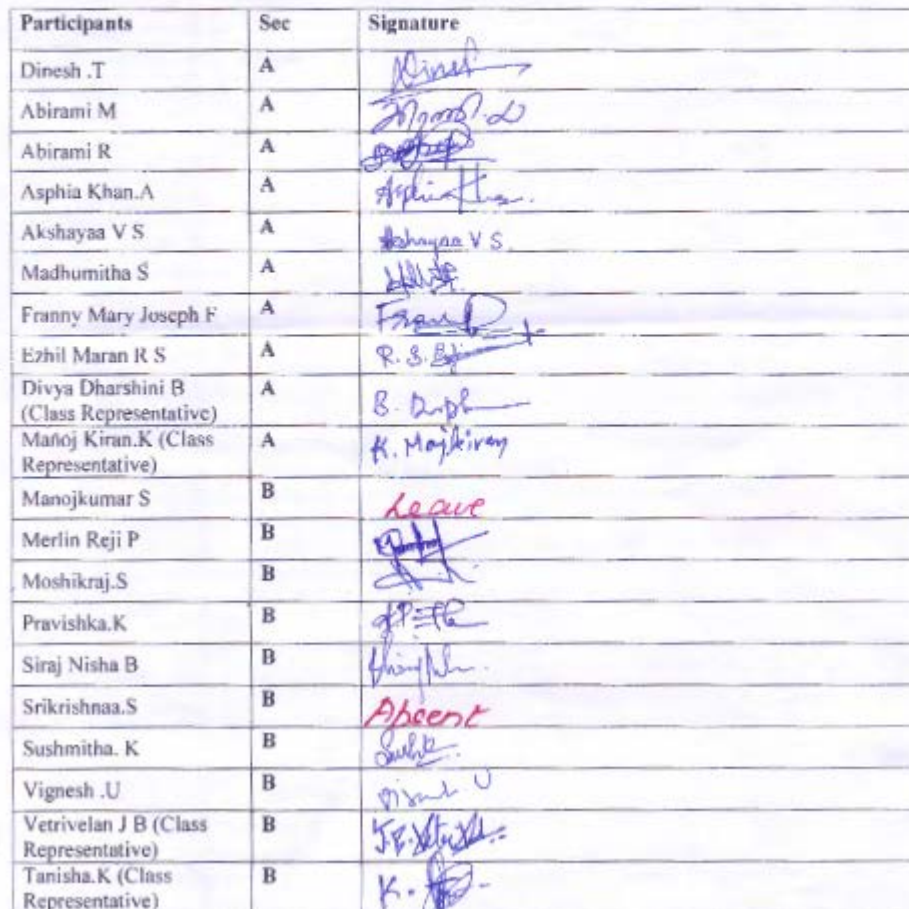 Participants Sec Signature
Dinesh .T A Dinesh
Abirami M A
Abirami R A
Asphia Khan.A A
Akshayaa V S A Akshayaa V S.
Madhumitha S A
Franny Mary Joseph F A
Ezhil Maran R S A R. S.
Divya Dharshini B A B.
(Class Representative)
Manoj Kiran.K (Class A K. Mojkiran
Representative)
Manojkumar S B Leave
Merlin Reji P B
Moshikraj.S B
Pravishka.K B
Siraj Nisha B B
Srikrishnaa.S B Absent
Sushmitha. K B
Vignesh .U B U
Vetrivelan J B (Class B J.B.
Representative)
Tanisha.K (Class B K.
Representative)